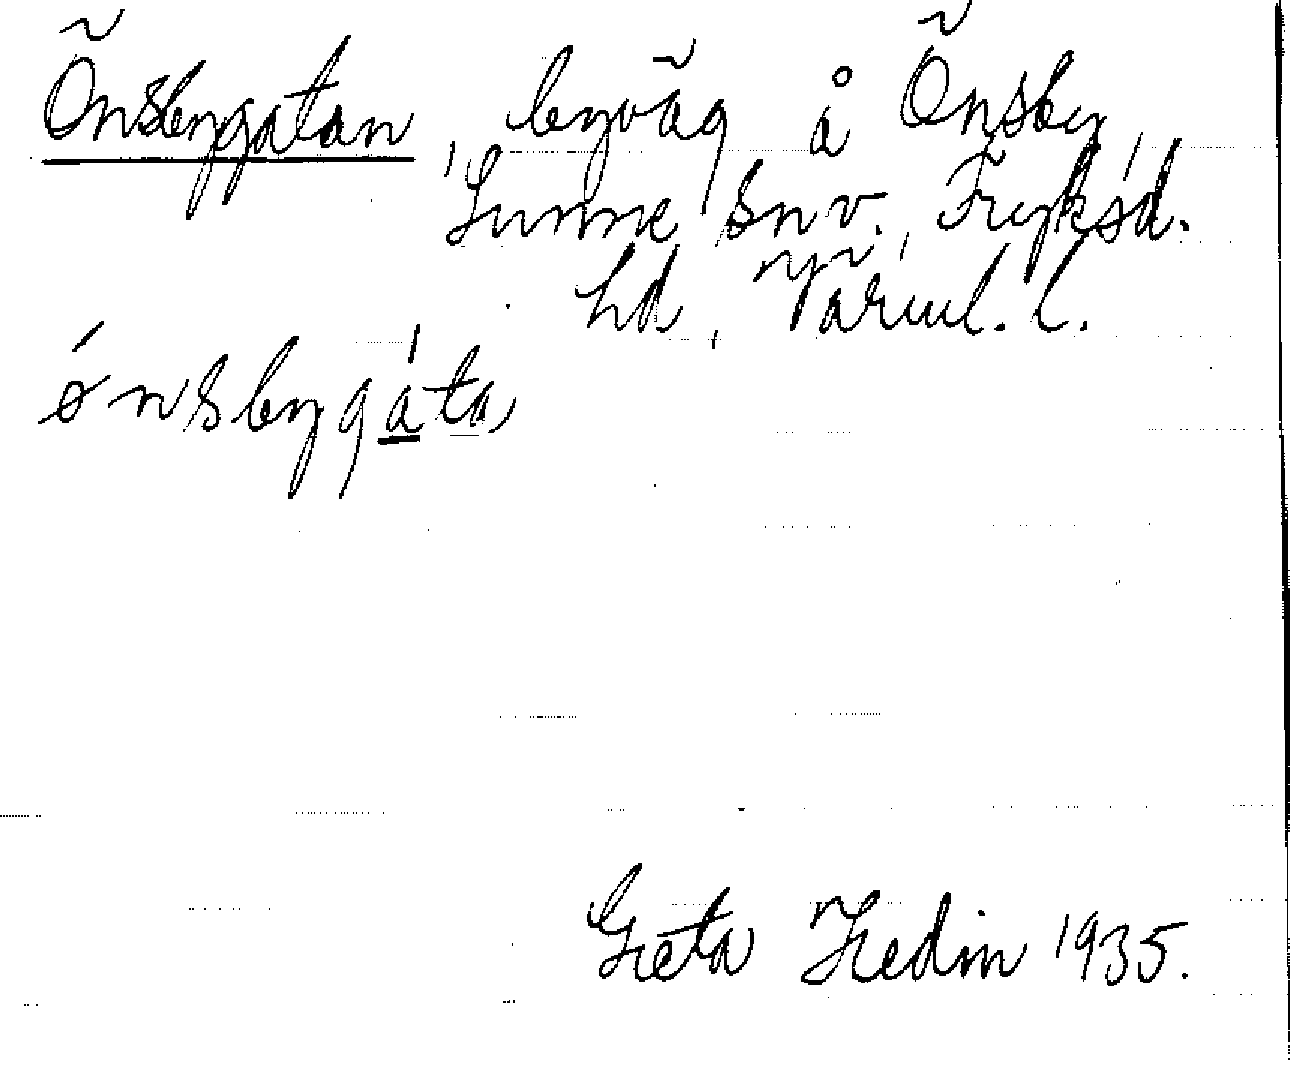 Önsbygatan, byväg å Önsby,
Sunne snv., Fryksd.
hd, Värml. l.
ǿnsbygáta
Greta Hedin 1935.